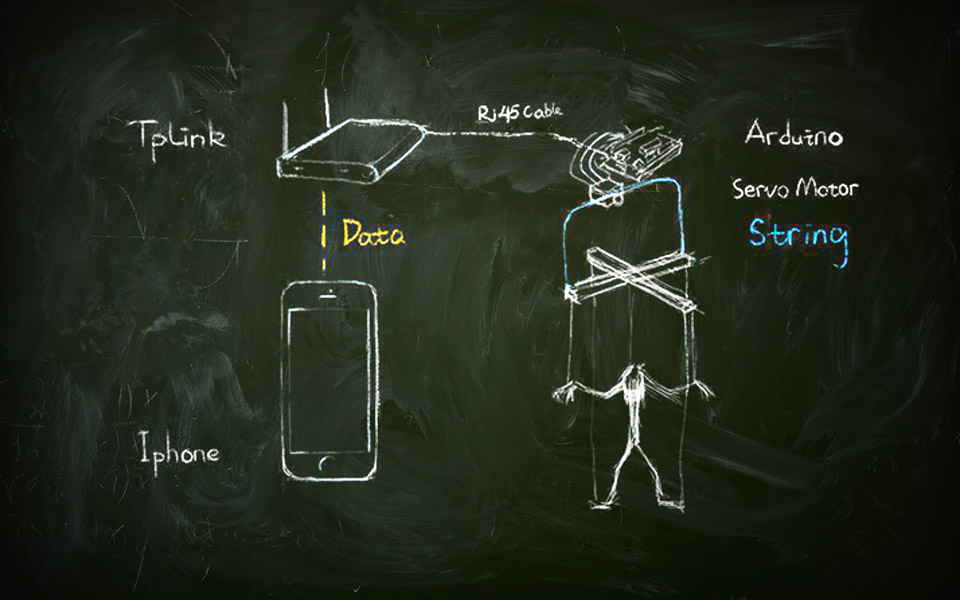 Rj45 Cable
TpLink
Arduino
Servo Motor
Data
String
Iphone